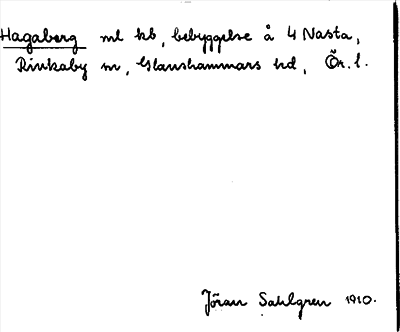 Hagaberg ml kb, bebyggelse å 4 Nasta,
Rinkaby sn, Glanshammars hd, Ör. l.
Jöran Sahlgren 1910.